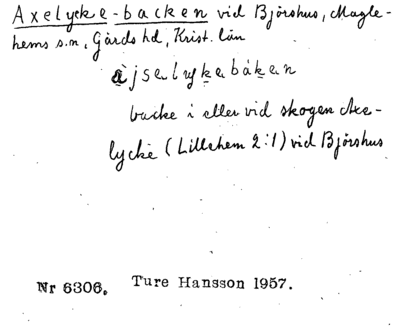 Axelycke-backen vid Björshus, Magle-
hems s:n, Gärds hd, Krist. län
àjsəlykəbákən
backe i eller vid skogen Axe-
lycke (Lillehem 2:1) vid Björshus
Nr 6306. Ture Hansson 1957.